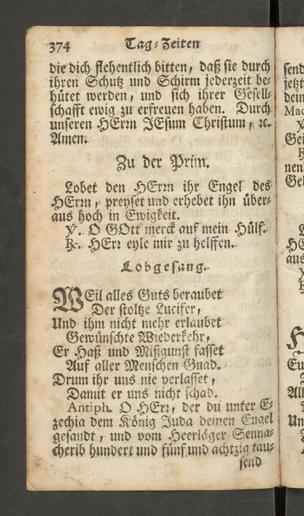 374 Tag-Zeiten
die dich flehentlich bitten, daß sie durch
ihren Schutz und Schirm jederzeit be-
hütet werden, und sich ihrer Gesell-
schafft ewig zu erfreuen haben. Durch
unseren HErrn JEsum Christum, ꝛc.
Amen.
Zu der Prim.
Lobet den HErrn ihr Engel des
HErrn, preyset und erhebet ihn über-
aus hoch in Ewigkeit.
℣. O GOtt merck auf mein Hülf.
℟. HErr eyle mir zu helffen.
Lobgesang.
WEil alles Guts beraubet
Der stoltze Lucifer,
Und ihm nicht mehr erlaubet
Gewünschte Wiederkehr,
Er Haß und Mißgunst fasset
Auf aller Menschen Gnad.
Drum ihr uns nie verlasset,
Damit er uns nicht schad.
Antiph. O HErr, der du unter E-
zechia dem König Juda deinen Engel
gesandt, und vom Heerläger Senna-
cherib hundert und fünf und achtzig tau-
send